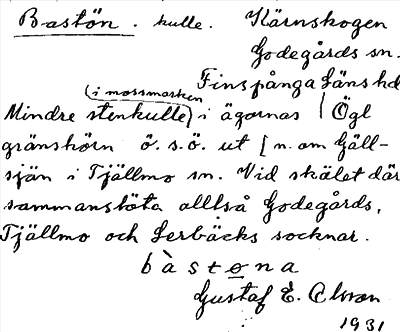 Bastön. kulle. Kärnskogen
Godegårds sn.
Finspånga läns hd
(i mossmarken
Mindre stenkulle) i ägornas | Ögl
gränshörn ö. s. ö. ut [n. om Gäll-
sjön i Tjällmo sn. Vid skälet där
sammanstöta alltså Godegårds,
Tjällmo och Lerbäcks socknar.
bàstøna
Gustaf E. Olsson
1931